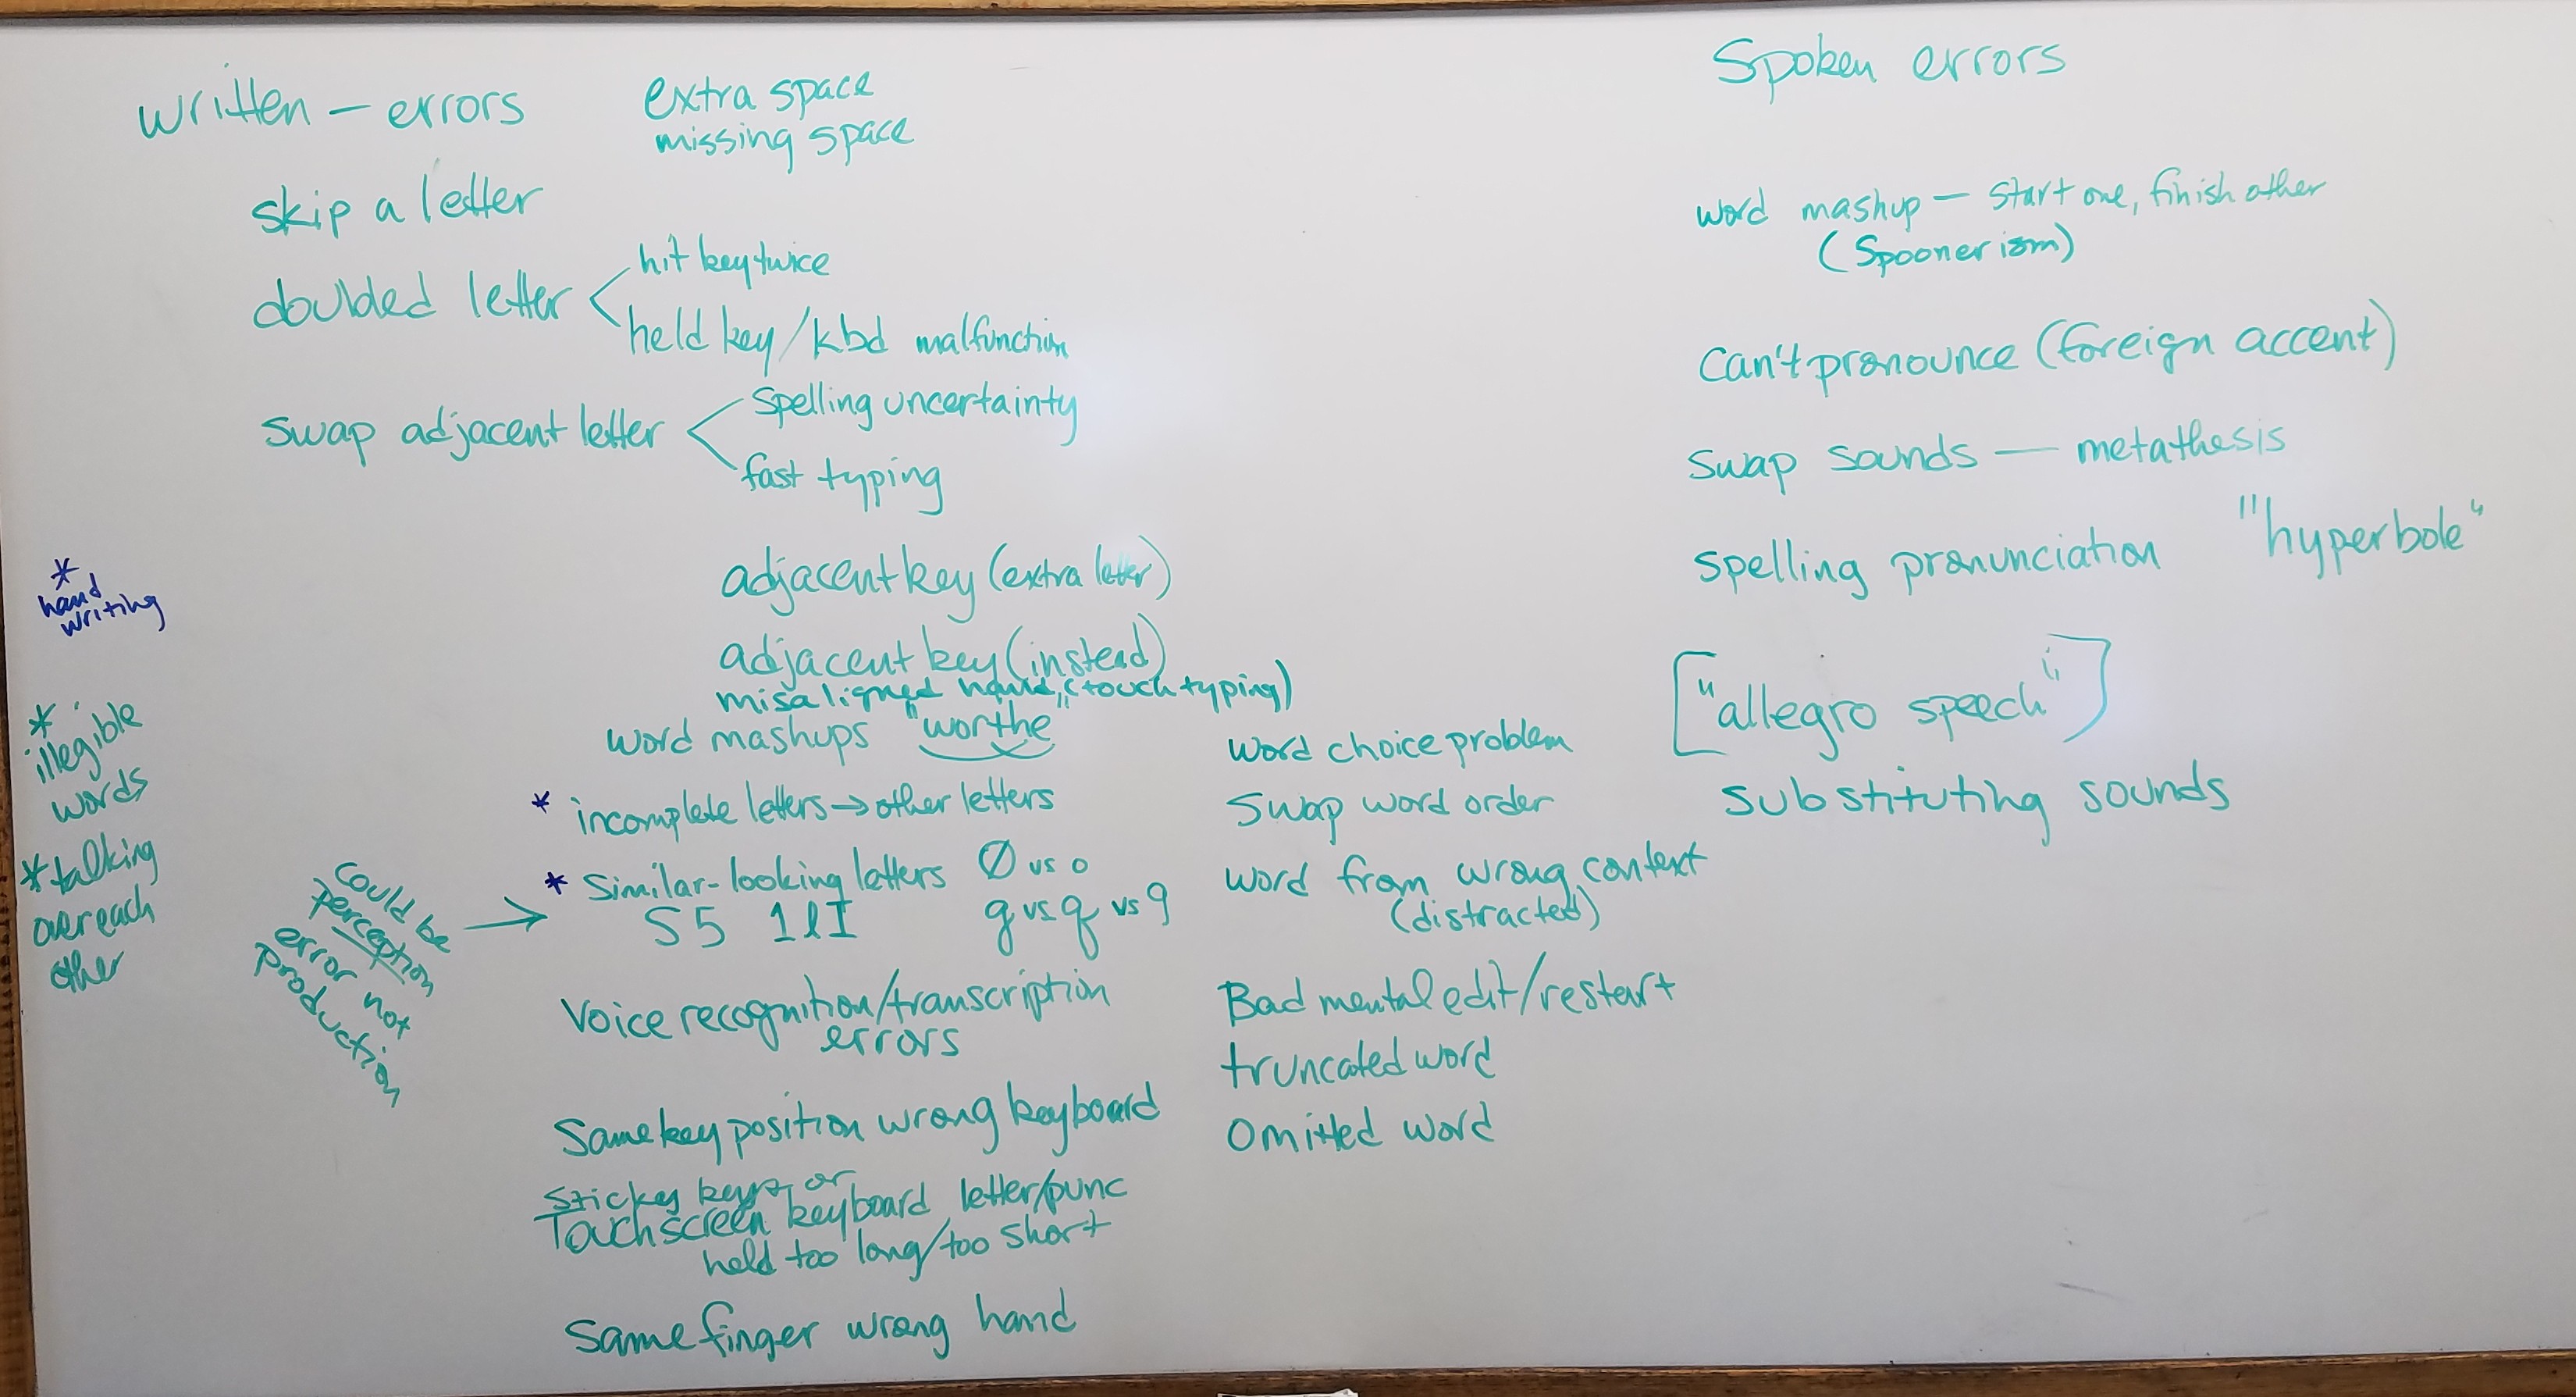 written - errors
extra space
missing space
skip a letter
doulded letter
hit key twice
held key/kbd malfunction
swap adjacent letter
spelling uncertainty
fast typing
adjacent key (extra letter)
adjacent key (instead)
misaligned hand, (touch typing)
word mashups "worthe"
* incomplete letters → other letters
* Similar-looking letters Ø vs o
S5 1lI g vs q vs 9
Voice recognition/transcription
errors
Same key position wrong keyboard
Sticky keys or
Touchscreen keyboard letter/punc
held too long/too short
Same finger wrong hand
*
hand
writing
*
illegible
words
*talking
over each
other
Could be
perception
error not
production
→
word choice problem
Swap word order
word from wrong context
(distracted)
Bad mental edit/restart
truncated word
Omitted word
Spoken errors
word mashup — start one, finish other
(Spoonerism)
Can't pronounce (foreign accent)
Swap sounds — metathesis
spelling pronunciation "hyperbole"
["allegro speech"]
substituting sounds